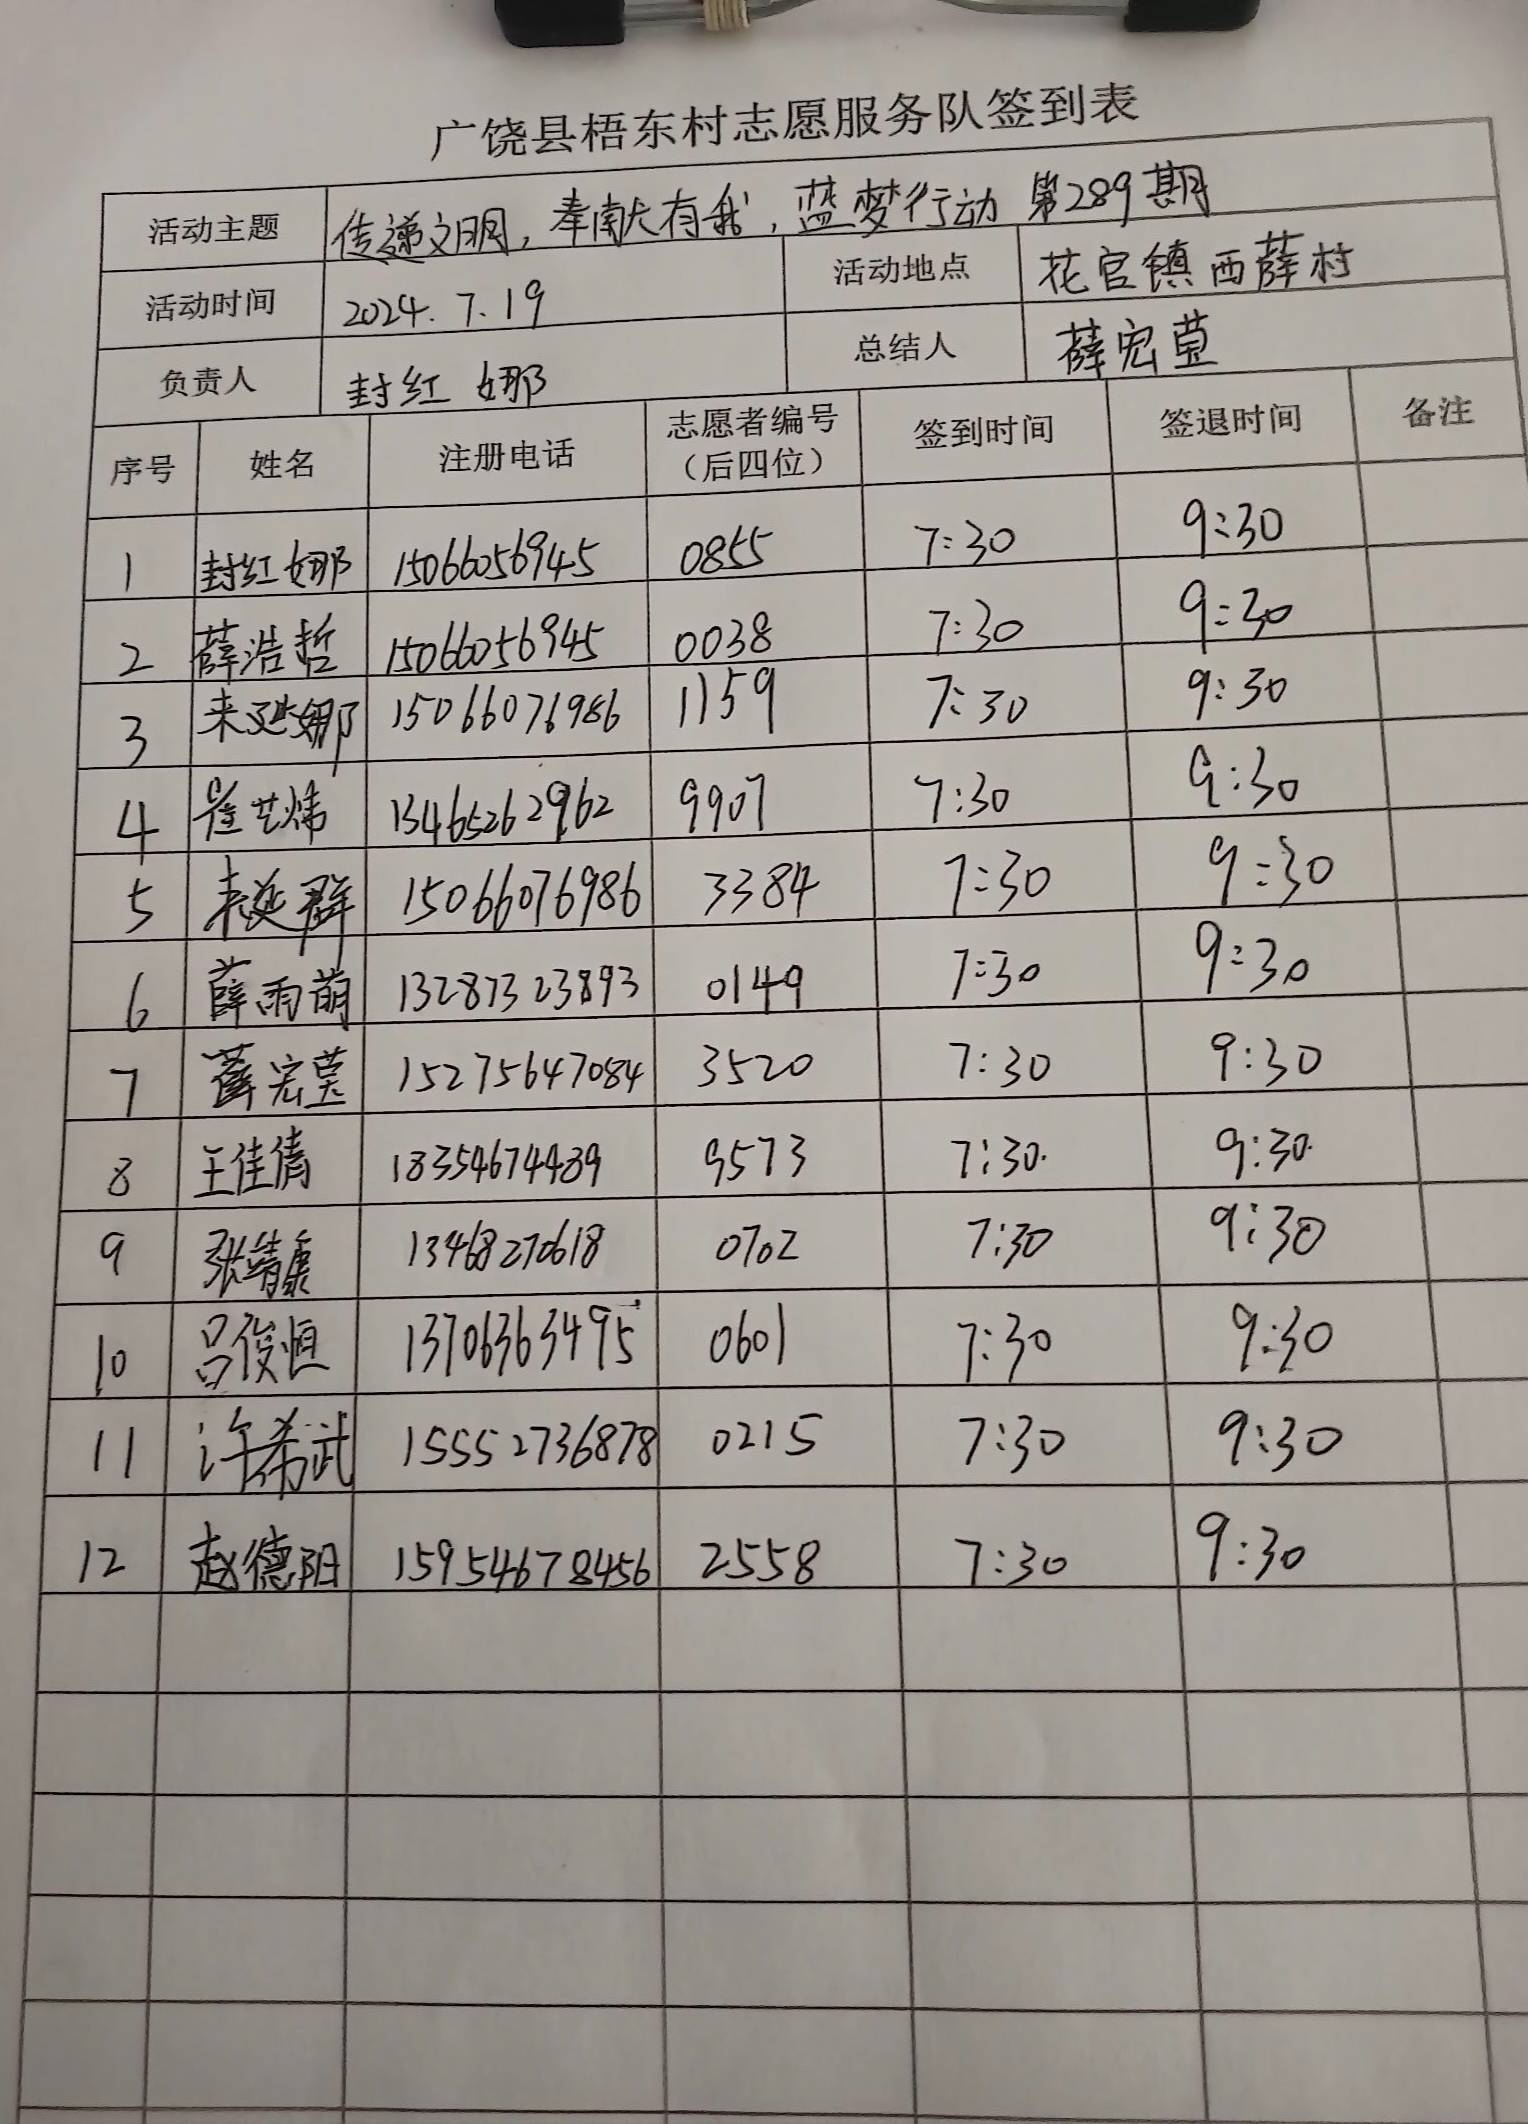 广饶县梧东村志愿服务队签到表
活动主题 传递文明，奉献有我，蓝梦行动 第289期
活动时间 2024.7.19 活动地点 花官镇西薛村
负责人 封红娜 总结人 薛宏莹
序号 姓名 注册电话 志愿者编号（后四位） 签到时间 签退时间 备注
1 封红娜 15066056945 0855 7:30 9:30
2 薛浩哲 15066056945 0038 7:30 9:30
3 来延娜 15066076986 1159 7:30 9:30
4 崔艺炜 13465262962 9907 7:30 9:30
5 来延群 15066076986 3384 7:30 9:30
6 薛雨萌 13287323893 0149 7:30 9:30
7 薛宏莹 15275647084 3520 7:30 9:30
8 王佳倩 18354674489 9573 7:30 9:30
9 张靖康 13468270618 0702 7:30 9:30
10 吕俊恒 13706363495 0601 7:30 9:30
11 许希武 15552736878 0215 7:30 9:30
12 赵德阳 15954678456 2558 7:30 9:30